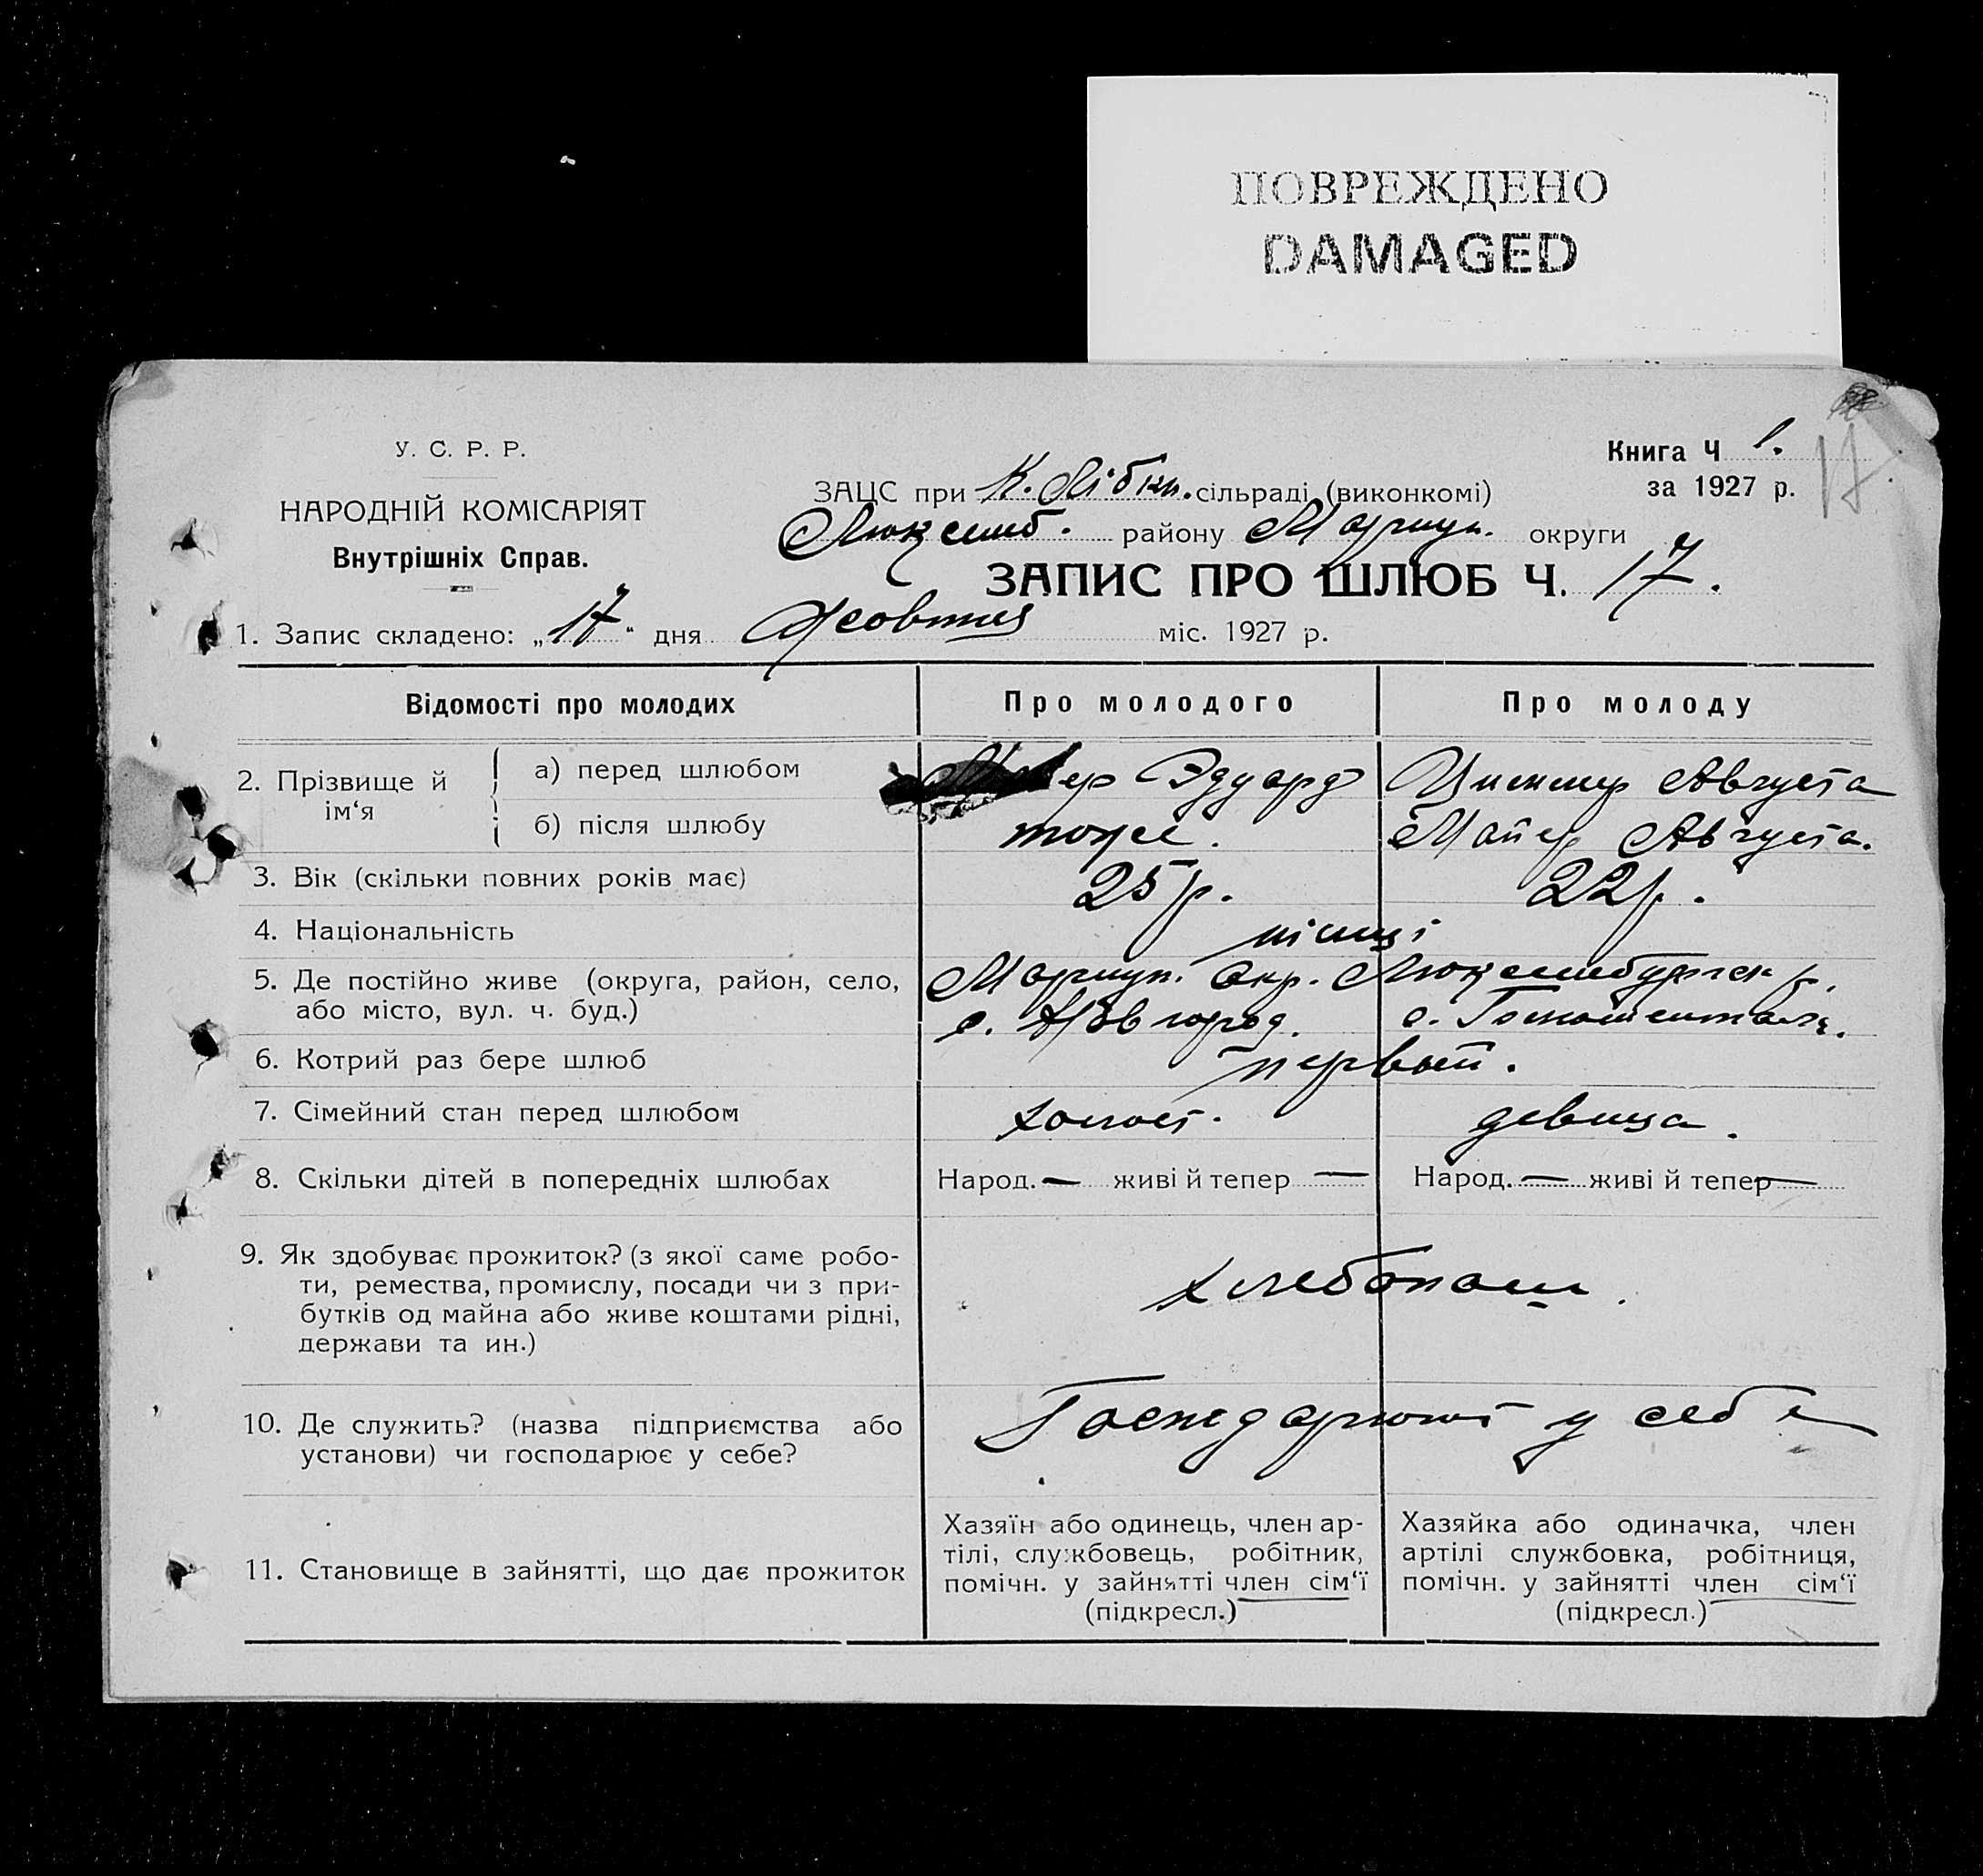 ПОВРЕЖДЕНО
DAMAGED
У. С. Р. Р.
НАРОДНІЙ КОМІСАРІЯТ
Внутрішніх Справ.
Книга Ч 1.
за 1927 р.
17.
ЗАЦС при К. Лібкн. сільраді (виконкомі)
Люксемб. району Маріуп. округи
ЗАПИС ПРО ШЛЮБ Ч. 17.
1. Запис складено: „17“ дня Жовтня міс. 1927 р.
Відомості про молодих
Про молодого
Про молоду
2. Прізвище й ім‘я
а) перед шлюбом
Эдуард
Августа
б) після шлюбу
тоже.
Майер Августа.
3. Вік (скільки повних років має)
25 р.
22 р.
4. Національність
німці
5. Де постійно живе (округа, район, село,
або місто, вул. ч. буд.)
Маріуп. окр. Люксембургск р.
с. Новгород.
с.
6. Котрий раз бере шлюб
первый.
7. Сімейний стан перед шлюбом
холост.
девица.
8. Скільки дітей в попередніх шлюбах
Народ. — живі й тепер —
Народ. — живі й тепер —
9. Як здобуває прожиток? (з якої саме робо-
ти, ремества, промислу, посади чи з при-
бутків од майна або живе коштами рідні,
держави та ин.)
хлебопаш.
10. Де служить? (назва підприємства або
установи) чи господарює у себе?
Господарюют у себе
11. Становище в зайнятті, що дає прожиток
Хазяїн або одинець, член ар-
тілі, службовець, робітник,
помічн. у зайнятті член сім‘ї
(підкресл.)
Хазяйка або одиначка, член
артілі службовка, робітниця,
помічн. у зайнятті член сім‘ї
(підкресл.)